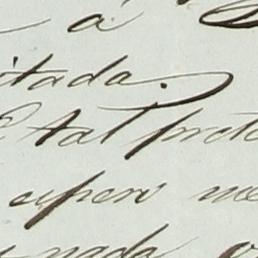 á
itada.
E tal prete
espero me
nada